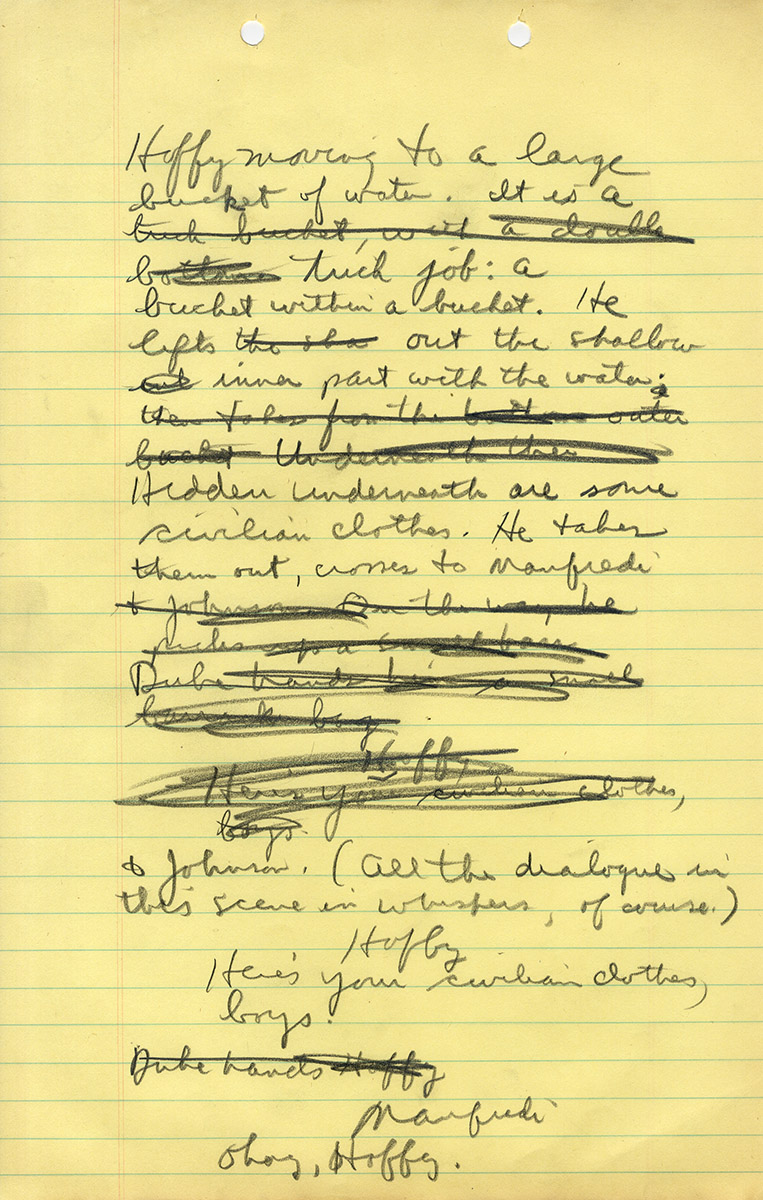 Hoffy moving to a large
bucket of water. It is a
trick bucket, with a double
bottom trick job: a
bucket within a bucket. He
lifts the sha out the shallow
inner part with the water.
then takes from the bottom outer
bucket Underneath then
Hidden underneath are some
civilian clothes. He takes
them out, crosses to Manfredi
& Johnson. On the way, he
picks up a small
Duke hands him a small
barrack bag
Hoffy
Here's your civilian clothes,
boys.
& Johnson. (All the dialogue in
this scene in whispers, of course.)
Hoffy
Here's your civilian clothes,
boys.
Duke hands Hoffy
Manfredi
Okay, Hoffy.